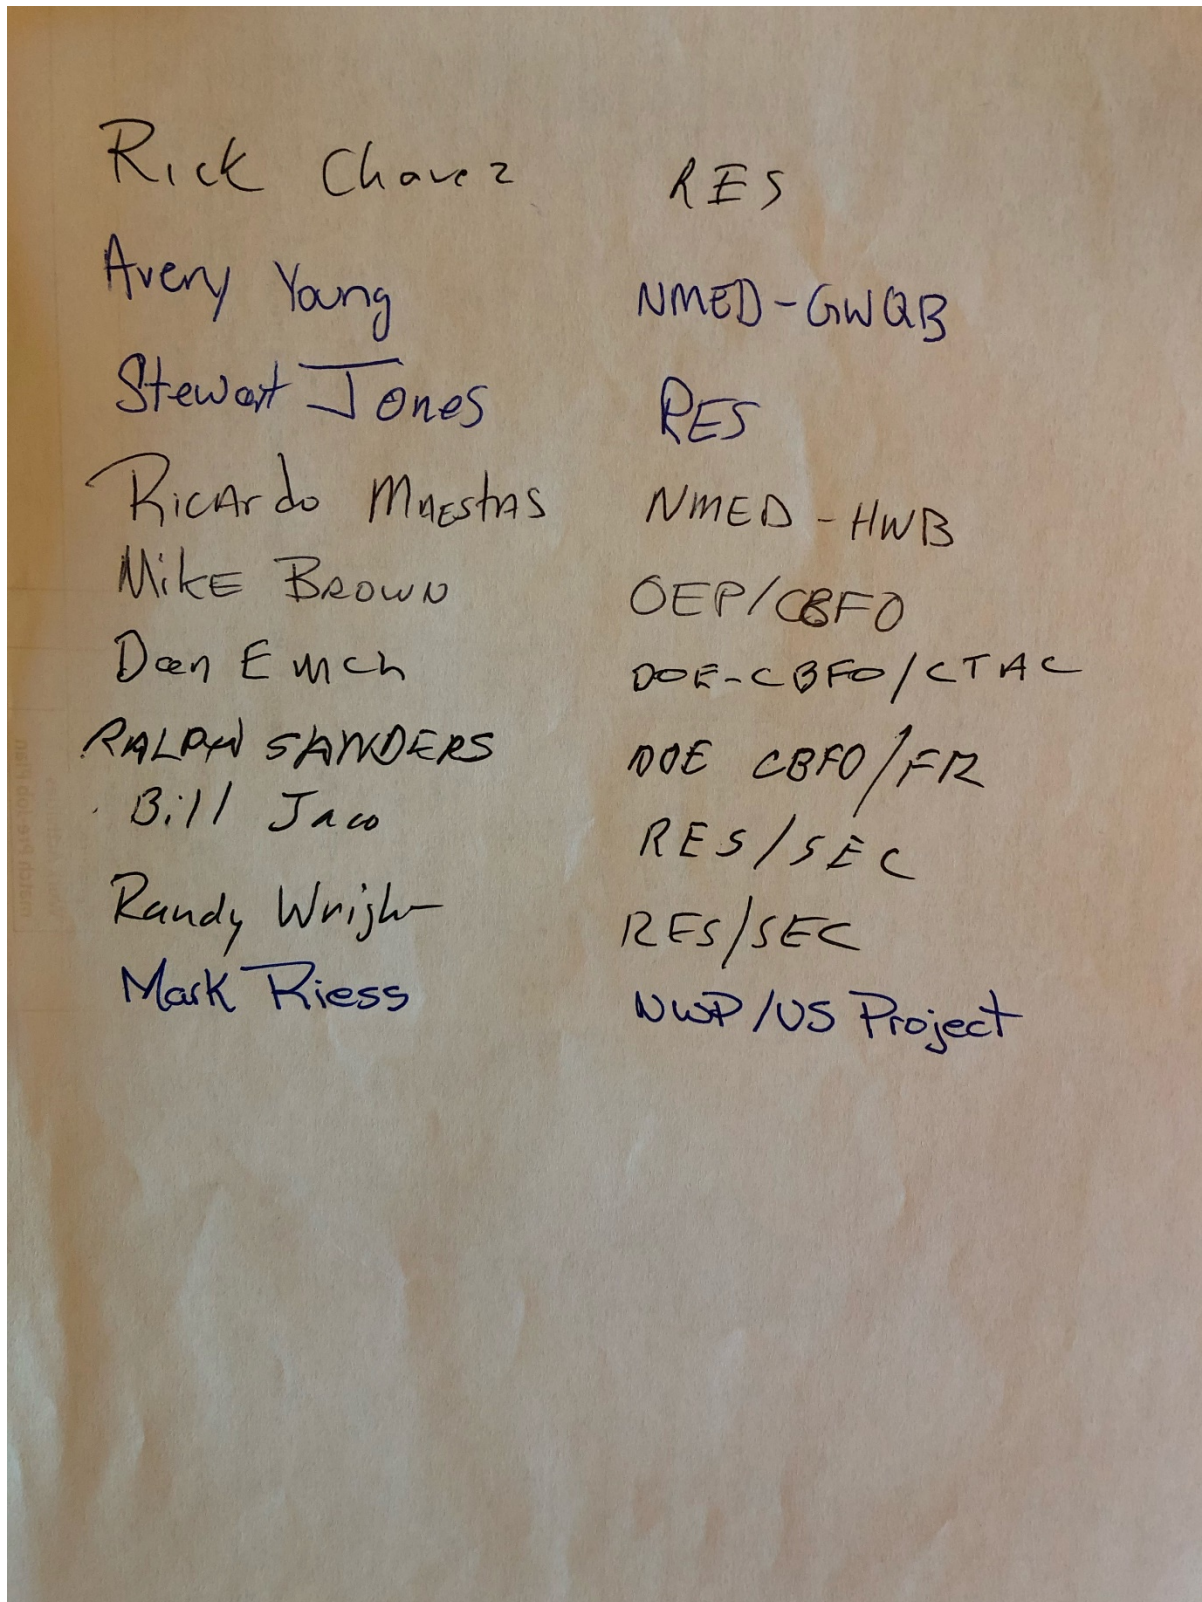 Rick Chavez RES
Avery Young NMED-GWQB
Stewart Jones RES
Ricardo Maestas NMED-HWB
Mike Brown OEP/CBFO
Dan Emch DOE-CBFO/CTAC
RALPH SANDERS DOE CBFO/FR
Bill Jaco RES/SEC
Randy Wright RES/SEC
Mark Riess NWP/US Project